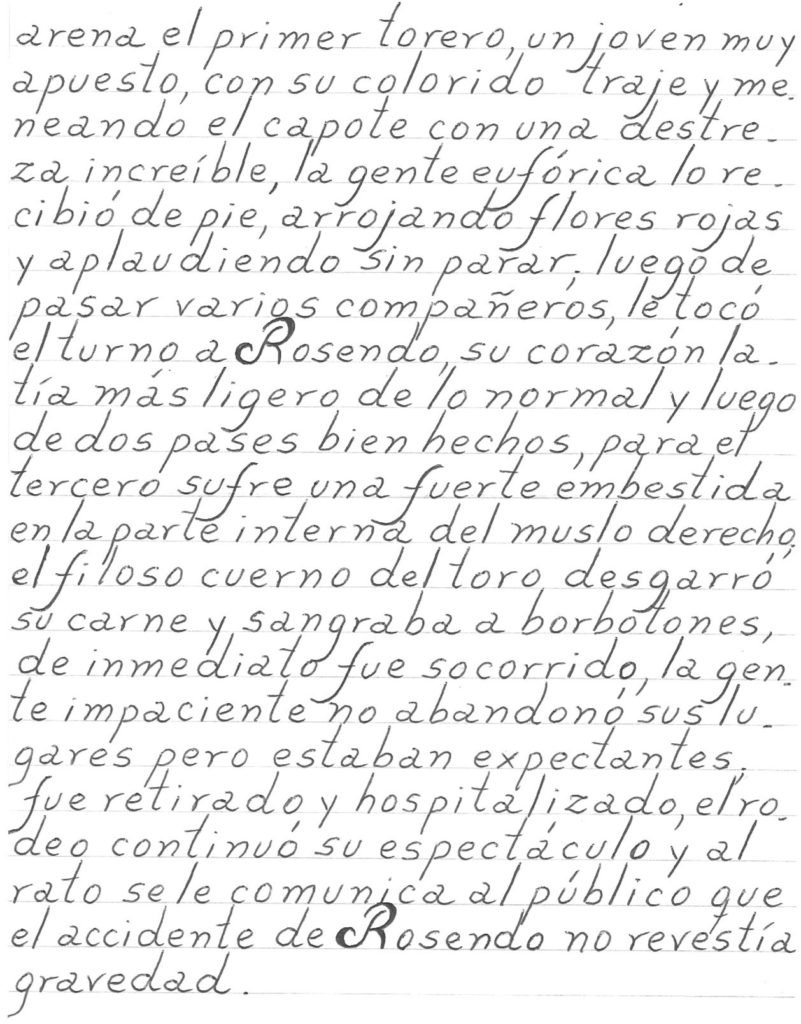 arena el primer torero, un joven muy
apuesto, con su colorido traje y me-
neando el capote con una destre-
za increíble, la gente eufórica lo re-
cibió de pie, arrojando flores rojas
y aplaudiendo sin parar; luego de
pasar varios compañeros, le tocó
el turno a Rosendo, su corazón la-
tía más ligero de lo normal y luego
de dos pases bien hechos, para el
tercero sufre una fuerte embestida
en la parte interna del muslo derecho,
el filoso cuerno del toro desgarró
su carne y sangraba a borbotones,
de inmediato fue socorrido, la gen-
te impaciente no abandonó sus lu-
gares pero estaban expectantes,
fue retirado y hospitalizado, el ro-
deo continuó su espectáculo y al
rato se le comunica al público que
el accidente de Rosendo no revestía
gravedad.